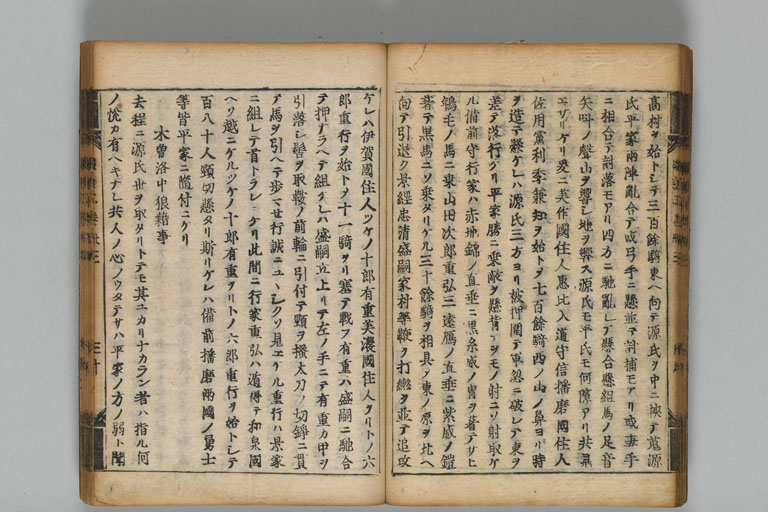 高村ヲ始トシテ三百餘騎東ヘ向テ源氏ヲ中ニ挾テ蒐源
氏平家兩陣亂合テ或弓手ニ懸並テ討捕モアリ或妻手
ニ相合テ討落モアリ四方ニ馳亂レテ懸合懸組馬ノ足音
矢叫ノ聲山ヲ響シ地ヲ響ス源氏モ平氏モ何隙アリ共見
エザリケリ爰ニ美作國住人惠比入道守信播磨國住人
佐用黨利季兼知ヲ始トノ七百餘騎西ノ山ノ鼻ヨリ時
ヲ造テ懸ケレハ源氏三方ヨリ被押圍テ軍忽ニ破レテ東ヲ
差テ落行ケリ平家勝ニ乗敵ヲ懸背テヲモノ射ニソ射取ケ
ル備前守行家ハ赤地錦ノ直垂ニ黒糸威ノ冑ヲ著テサヒ
鴾毛ノ馬ニ乗山田次郎重弘ニ遠鴈ノ直垂ニ紫威ノ鎧
著テ黒馬ニソ乗タリケル三十餘騎ヲ相具ノ東ノ原ヲ北ヘ
向テ引退ク景經忠清盛嗣家村等轡ヲ打 ヲ並テ追攻
ケレハ伊賀國住人ツケノ十郎有重美濃國住人ヲリトノ六
郎重行ヲ始トノ十一騎ヲリ塞テ戰フ有重ハ盛嗣ニ馳合
テ押ナラヘテ組ケレハ盛嗣立上リテ左ノ手ニテ有重カ甲ヲ
引落シ髻ヲ取鞍ノ前輪ニ引付テ頸ヲ掻太刀ノ切鋒ニ貫
テ馬ヲ引ヘテ歩マセ行誠ニユヽシクソ見エケル重行ハ景家
ニ組レテ首トラレニケリ此間ニ行家重弘ハ遁得テ和泉國
ヘソ越ニケルツケノ十郎有重ヲリトノ六郎重行ヲ始トシテ
百八十人頸切懸タリ斯リケレハ備前播磨兩國ノ勇士
等皆平家ニ隨付ニケリ
木曽洛中狼藉事
去程ニ源氏世ヲ取タリトテモ其ユカリナカラン者ハ指ル何
ノ悦カ有ヘキナレ共人ノ心ノウタテサハ平家ノ方ノ弱ト聞